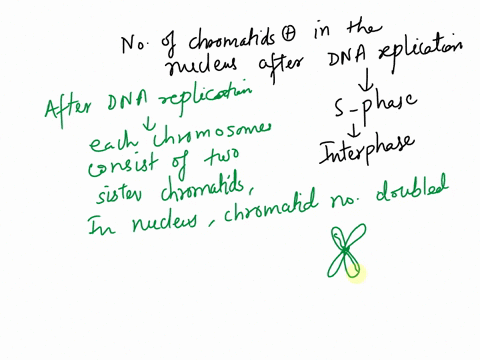 No. of chromatids ⊕ in the
nucleus after DNA replication
↓
S-phase
↓
Interphase
After DNA replication
↓
each chromosomes
consist of two
sister chromatids,
In nucleus, chromatid no. doubled